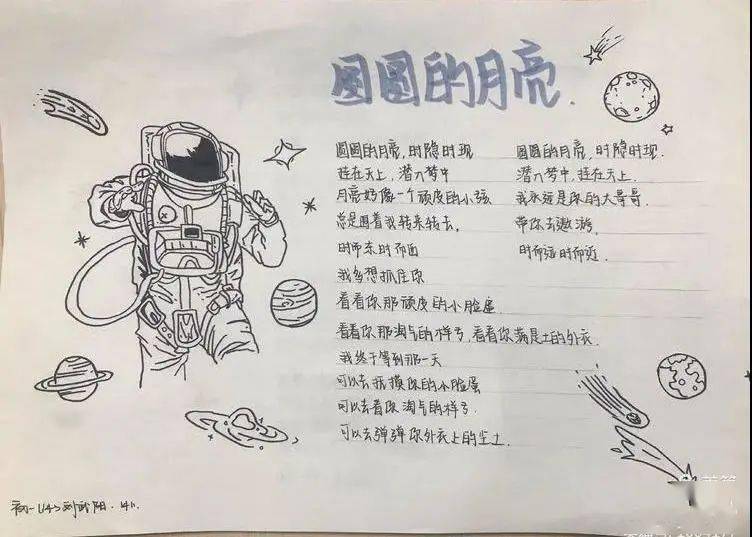 圆圆的月亮.
圆圆的月亮,时隐时现
挂在天上,潜入梦中
月亮好像一个顽皮的小孩
总是围着我转来转去,
时而东时而西
我多想抓住你
看看你那顽皮的小脸蛋
看看你那淘气的样子,看看你满是土的外衣.
我终于等到那一天
可以去抚摸你的小脸蛋
可以去看你淘气的样子.
可以去弹弹你外衣上的尘土.
圆圆的月亮,时隐时现.
潜入梦中,挂在天上.
我永远是你的大哥哥.
带你去遨游,
时而远时而近.
初一(14)刘 阳.